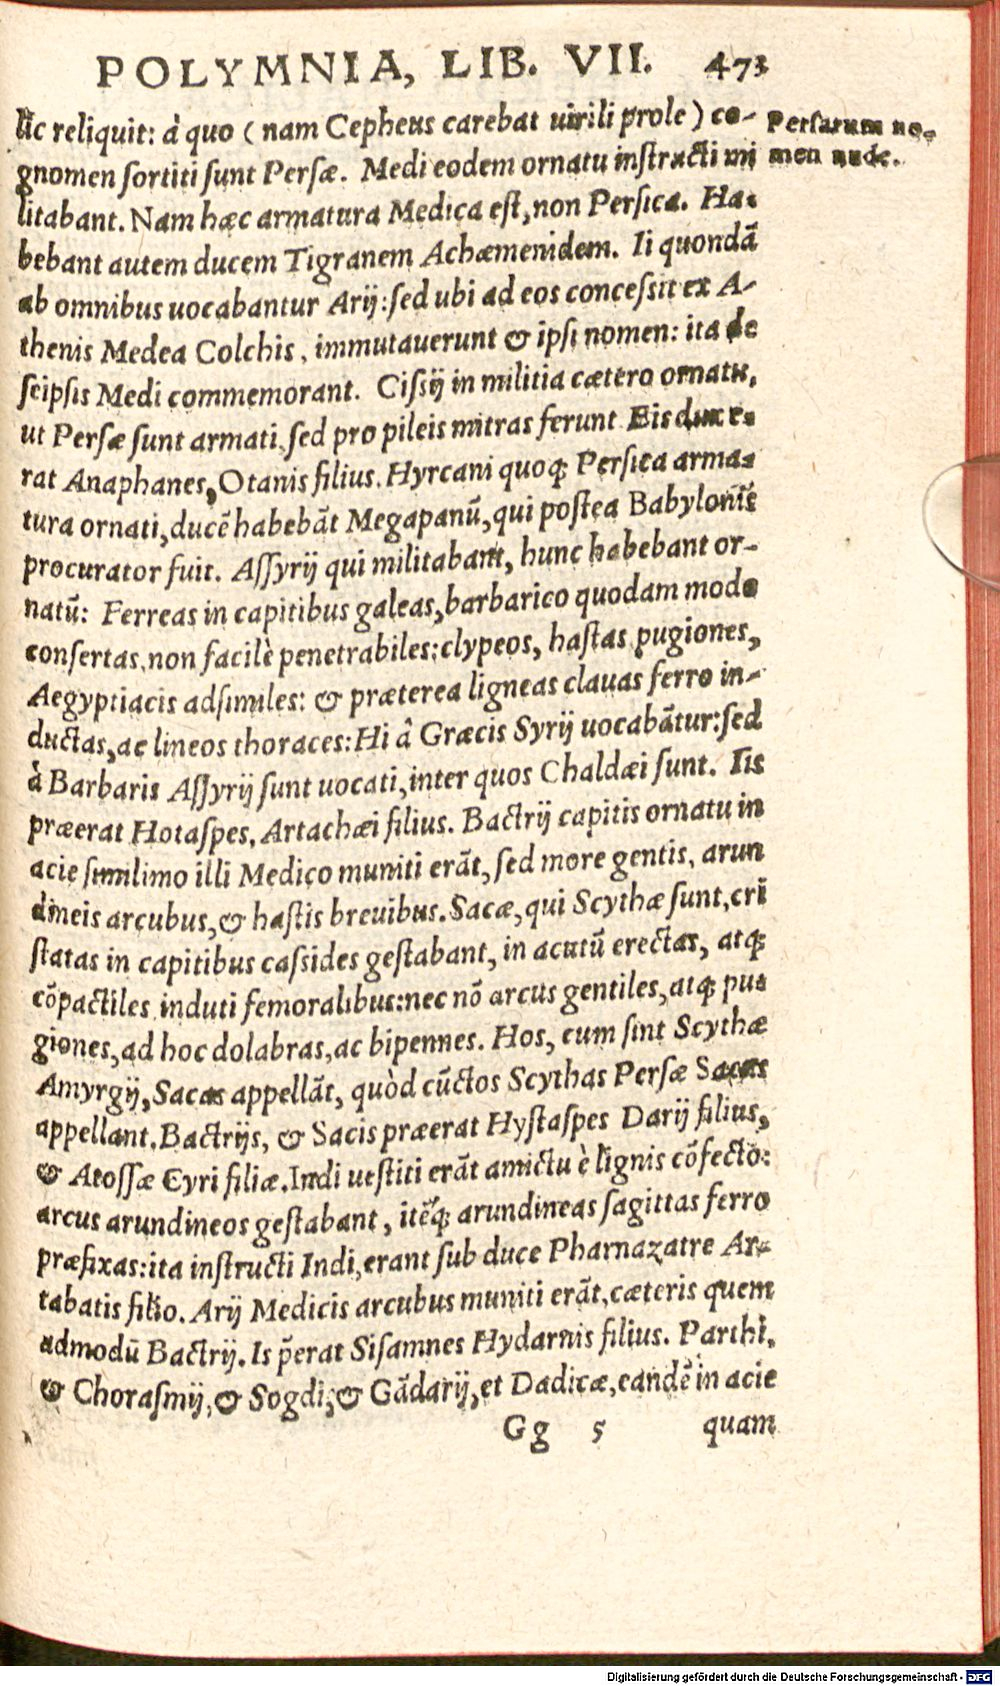 POLYMNIA, LIB. VII. 473
lic reliquit: à quo (nam Cepheus carebat uirili prole) co-
gnomen sortiti sunt Persæ. Medi eodem ornatu instructi mi
litabant. Nam hæc armatura Medica est, non Persica. Ha-
bebant autem ducem Tigranem Achæmenidem. Ii quondā
ab omnibus uocabantur Arij: sed ubi ad eos concessit ex A-
thenis Medea Colchis, immutauerunt & ipsi nomen: ita de
seipsis Medi commemorant. Cissij in militia cætero ornatu,
ut Persæ sunt armati, sed pro pileis mitras ferunt Eis dux e-
rat Anaphanes, Otanis filius. Hyrcani quoqꝫ Persica arma-
tura ornati, ducē habebāt Megapanū, qui postea Babylonis
procurator fuit. Assyrij qui militabant, hunc habebant or-
natū: Ferreas in capitibus galeas, barbarico quodam modo
consertas, non facilè penetrabiles: clypeos, hastas, pugiones,
Aegyptiacis adsimiles: & præterea ligneas clauas ferro in-
ductas, ac lineos thoraces: Hi â Græcis Syrij uocabātur: sed
à Barbaris Assyrij sunt uocati, inter quos Chaldæi sunt. Iis
præerat Hotaspes, Artachæi filius. Bactrij capitis ornatu in
acie simlimo illi Medico muniti erāt, sed more gentis, arun
dineis arcubus, & hastis breuibus. Sacæ, qui Scythæ sunt, cri
statas in capitibus cassides gestabant, in acutū erectas, atqꝫ
cōpactiles induti femoralibus: nec nō arcus gentiles, atqꝫ pu-
giones, ad hoc dolabras, ac bipennes. Hos, cum sint Scythæ
Amyrgij, Sacas appellāt, quòd cūctos Scythas Persæ Sacas
appellant. Bactrijs, & Sacis præerat Hystaspes Darij filius,
& Atossæ Cyri filiæ. Indi uestiti erāt amictu è lignis cōfecto:
arcus arundineos gestabant, itēqꝫ arundineas sagittas ferro
præfixas: ita instructi Indi, erant sub duce Pharnazatre Ar-
tabatis filio. Arij Medicis arcubus muniti erāt, cæteris quem
admodū Bactrij. Is p̄erat Sisamnes Hydarnis filius. Parthi,
& Chorasmij, & Sogdi, & Gādarij, et Dadicæ, eandē in acie
Gg 5 quam
Persarum no-
men unde.
Digitalisierung gefördert durch die Deutsche Forschungsgemeinschaft - DFG